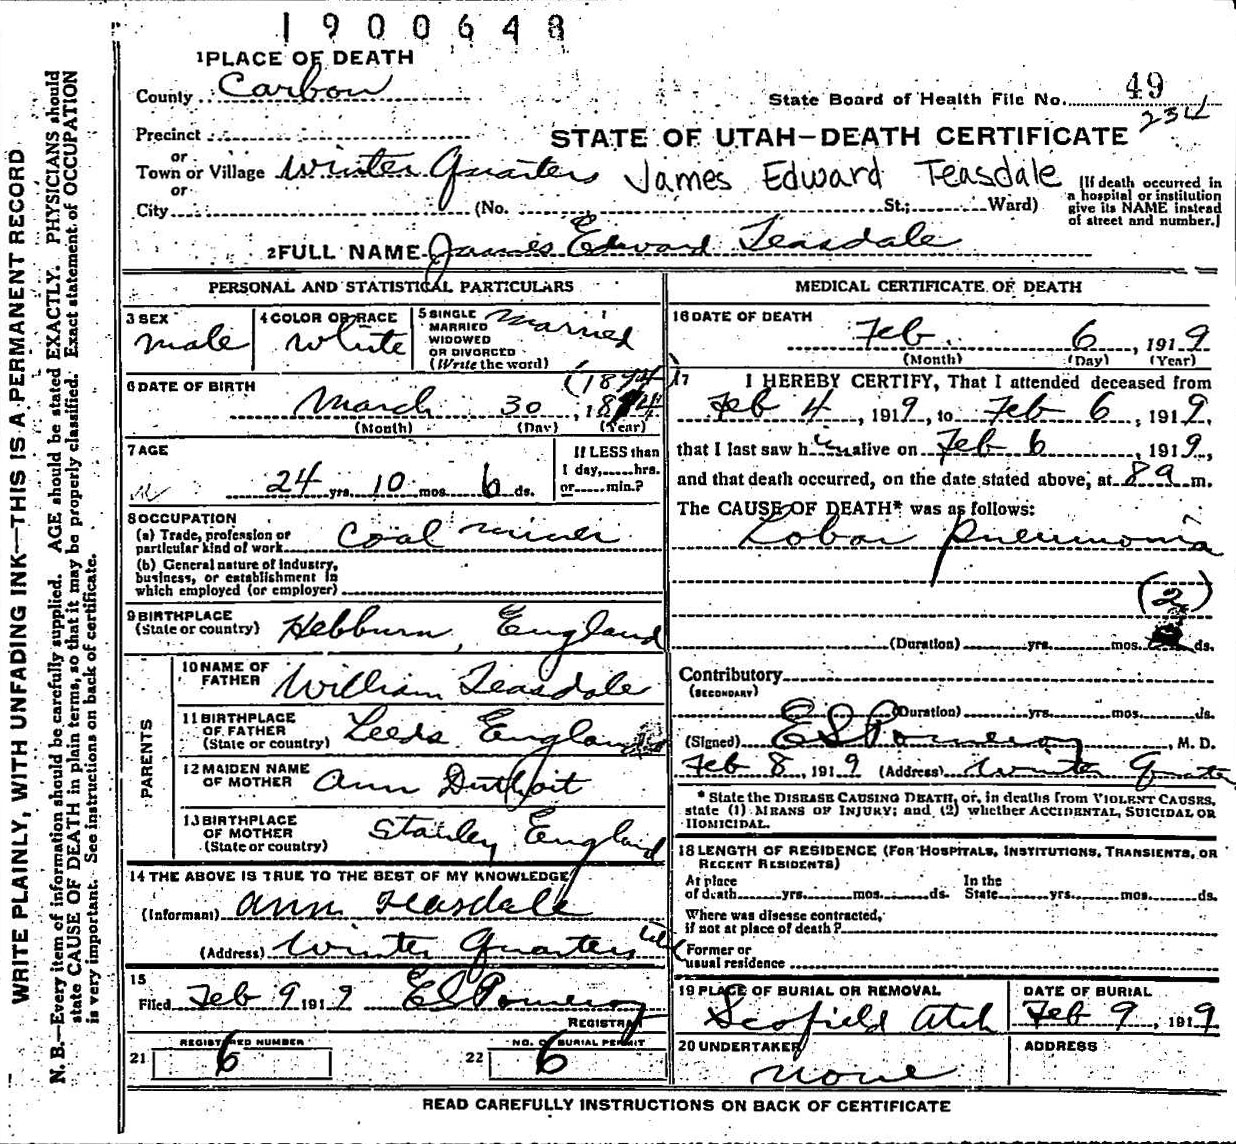 1900648
1 PLACE OF DEATH
County Carbon
49
State Board of Health File No.
234
Precinct
STATE OF UTAH—DEATH CERTIFICATE
or
Town or Village Winter Quarters James Edward Teasdale
or
City (No. St.; Ward)
(If death occurred in
a hospital or institution
give its NAME instead
of street and number.)
2 FULL NAME James Edward Teasdale
PERSONAL AND STATISTICAL PARTICULARS
3 SEX
male
4 COLOR OR RACE
white
5 SINGLE
MARRIED
WIDOWED
OR DIVORCED
(Write the word)
Married
6 DATE OF BIRTH
(1894)
March 30, 1894
(Month) (Day) (Year)
7 AGE
24 yrs. 10 mos. 6 ds.
If LESS than
1 day,......hrs.
or......min.?
8 OCCUPATION
(a) Trade, profession or
particular kind of work Coal miner
(b) General nature of industry,
business, or establishment in
which employed (or employer)
9 BIRTHPLACE
(State or country) Hebburn, England
PARENTS
10 NAME OF
FATHER William Teasdale
11 BIRTHPLACE
OF FATHER
(State or country) Leeds England
12 MAIDEN NAME
OF MOTHER Ann Duthoit
13 BIRTHPLACE
OF MOTHER
(State or country) Stanley England
14 THE ABOVE IS TRUE TO THE BEST OF MY KNOWLEDGE
(Informant) Ann Teasdale
(Address) Winter Quarters Utah
15
Filed Feb 9 1919 E S Pomeroy
REGISTRAR
21 REGISTERED NUMBER
6
22 NO. OF BURIAL PERMIT
6
MEDICAL CERTIFICATE OF DEATH
16 DATE OF DEATH
Feb. 6, 1919
(Month) (Day) (Year)
17 I HEREBY CERTIFY, That I attended deceased from
Feb 4, 1919, to Feb 6, 1919,
that I last saw him alive on Feb 6, 1919,
and that death occurred, on the date stated above, at 8 a m.
The CAUSE OF DEATH* was as follows:
Lobar Pneumonia
(2)
(Duration) yrs. mos. ds.
Contributory
(SECONDARY)
(Duration) yrs. mos. ds.
(Signed) E S Pomeroy, M. D.
Feb 8, 1919 (Address) Winter Quarters
* State the DISEASE CAUSING DEATH, or, in deaths from VIOLENT CAUSES,
state (1) MEANS OF INJURY; and (2) whether ACCIDENTAL, SUICIDAL OR
HOMICIDAL.
18 LENGTH OF RESIDENCE (FOR HOSPITALS, INSTITUTIONS, TRANSIENTS, OR
RECENT RESIDENTS)
At place
of death yrs. mos. ds.
In the
State yrs. mos. ds.
Where was disease contracted,
if not at place of death?
Former or
usual residence
19 PLACE OF BURIAL OR REMOVAL
Scofield Utah
DATE OF BURIAL
Feb 9, 1919
20 UNDERTAKER
none
ADDRESS
READ CAREFULLY INSTRUCTIONS ON BACK OF CERTIFICATE
WRITE PLAINLY, WITH UNFADING INK—THIS IS A PERMANENT RECORD
N. B.—Every item of information should be carefully supplied. AGE should be stated EXACTLY. PHYSICIANS should
state CAUSE OF DEATH in plain terms, so that it may be properly classified. Exact statement of OCCUPATION
is very important. See instructions on back of certificate.